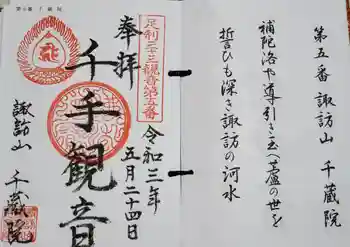 第五番 諏訪山 千蔵院
補陀洛や導引き玉へ蘆の世を
誓ひも深き諏訪の河水
足利三十三観音第五番
奉拝
令和三年
五月二十四日
千手観音
諏訪山 千蔵院